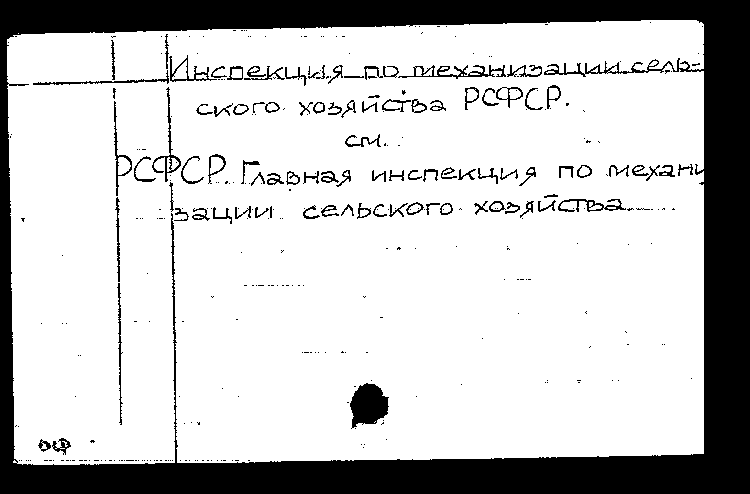 Инспекция по механизации сель-
ского хозяйства РСФСР.
см.
РСФСР. Главная инспекция по механи
зации сельского хозяйства